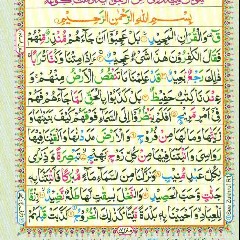 بِسْمِ اللّٰهِ الرَّحْمٰنِ الرَّحِيْمِ
قٓ وَالْقُرْاٰنِ الْمَجِيْدِ بَلْ عَجِبُوْٓا اَنْ جَآءَهُمْ مُّنْذِرٌ مِّنْهُمْ
فَقَالَ الْكٰفِرُوْنَ هٰذَا شَيْءٌ عَجِيْبٌ ءَاِذَا مِتْنَا وَكُنَّا تُرَابًا
ذٰلِكَ رَجْعٌۢ بَعِيْدٌ قَدْ عَلِمْنَا مَا تَنْقُصُ الْاَرْضُ مِنْهُمْ وَ
عِنْدَنَا كِتٰبٌ حَفِيْظٌ بَلْ كَذَّبُوْا بِالْحَقِّ لَمَّا جَآءَهُمْ فَهُمْ
فِيْٓ اَمْرٍ مَّرِيْجٍ اَفَلَمْ يَنْظُرُوْٓا اِلَى السَّمَآءِ فَوْقَهُمْ كَيْفَ بَنَيْنٰهَا
وَزَيَّنّٰهَا وَمَا لَهَا مِنْ فُرُوْجٍ وَالْاَرْضَ مَدَدْنٰهَا وَاَلْقَيْنَا فِيْهَا
رَوَاسِيَ وَاَنْۢبَتْنَا فِيْهَا مِنْ كُلِّ زَوْجٍۭ بَهِيْجٍ تَبْصِرَةً وَّذِكْرٰى
لِكُلِّ عَبْدٍ مُّنِيْبٍ وَنَزَّلْنَا مِنَ السَّمَآءِ مَآءً مُّبٰرَكًا فَاَنْۢبَتْنَا بِهٖ
جَنّٰتٍ وَّحَبَّ الْحَصِيْدِ وَالنَّخْلَ بٰسِقٰتٍ لَّهَا طَلْعٌ نَّضِيْدٌ رِّزْقًا
لِّلْعِبَادِ وَاَحْيَيْنَا بِهٖ بَلْدَةً مَّيْتًا كَذٰلِكَ الْخُرُوْجُ كَذَّبَتْ قَبْلَهُمْ